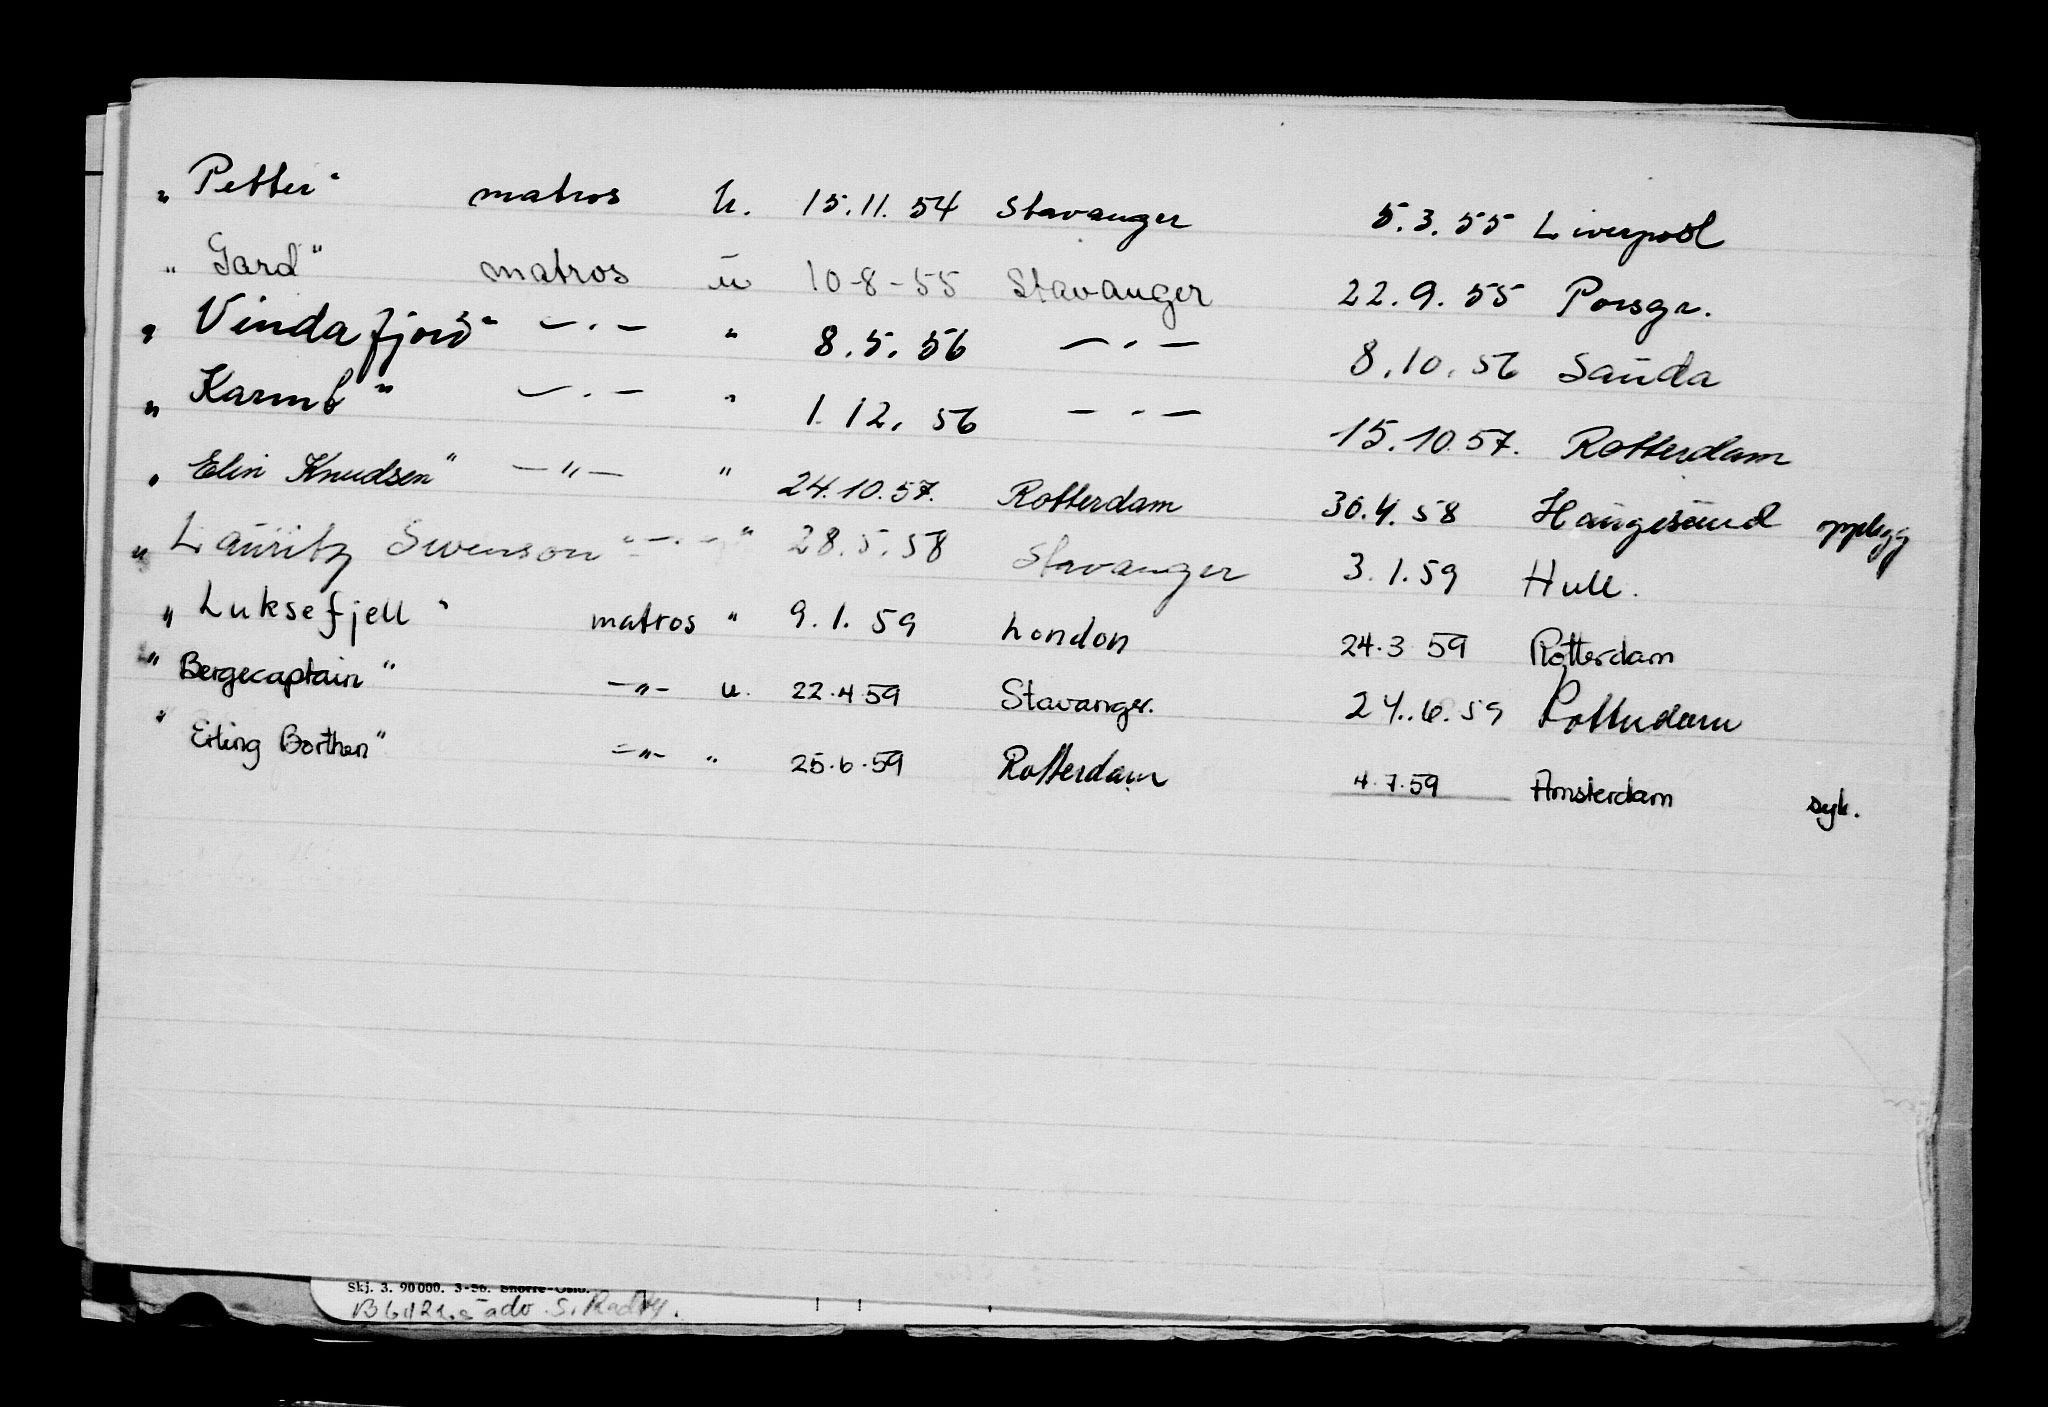 „ Petter“ matros u. 15.11.54 Stavanger 5.3.55 Liverpool
„ Gard“ matros u 10-8-55 Stavanger 22.9.55 Porsgr.
„ Vindafjord“ —.— " 8.5.56 —.— 8.10.56 Sauda
„ Karmt“ —.— " 1.12.56 —"— 15.10.57. Rotterdam
„ Elin Knudsen“ —"— " 24.10.57. Rotterdam 30.4.58 Haugesund opplegg
„ Lauritz Swenson“ —"— " 28.5.58 Stavanger 3.1.59 Hull.
„ Luksefjell“ matros " 9.1.59 London 24.3 59 Rotterdam
" Bergecaptain“ —"— u. 22.4 59 Stavanger. 24.6.59 Rotterdam
" Erling Borthen“ —"— " 25.6.59 Rotterdam 4.7.59 Amsterdam syk.
Skj. 3. 90 000. 3-56. Snorre-Oslo.